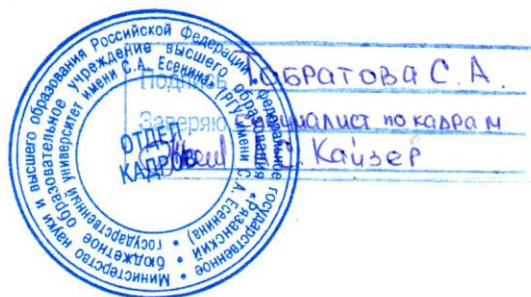 Министерство науки и высшего образования Российской Федерации • федеральное государственное бюджетное образовательное учреждение высшего образования «Рязанский государственный университет имени С.А. Есенина» (РГУ имени С.А. Есенина)
ОТДЕЛ
КАДРОВ
Подпись С.А.
Заверяю Специалист по кадрам
С. Кайзер